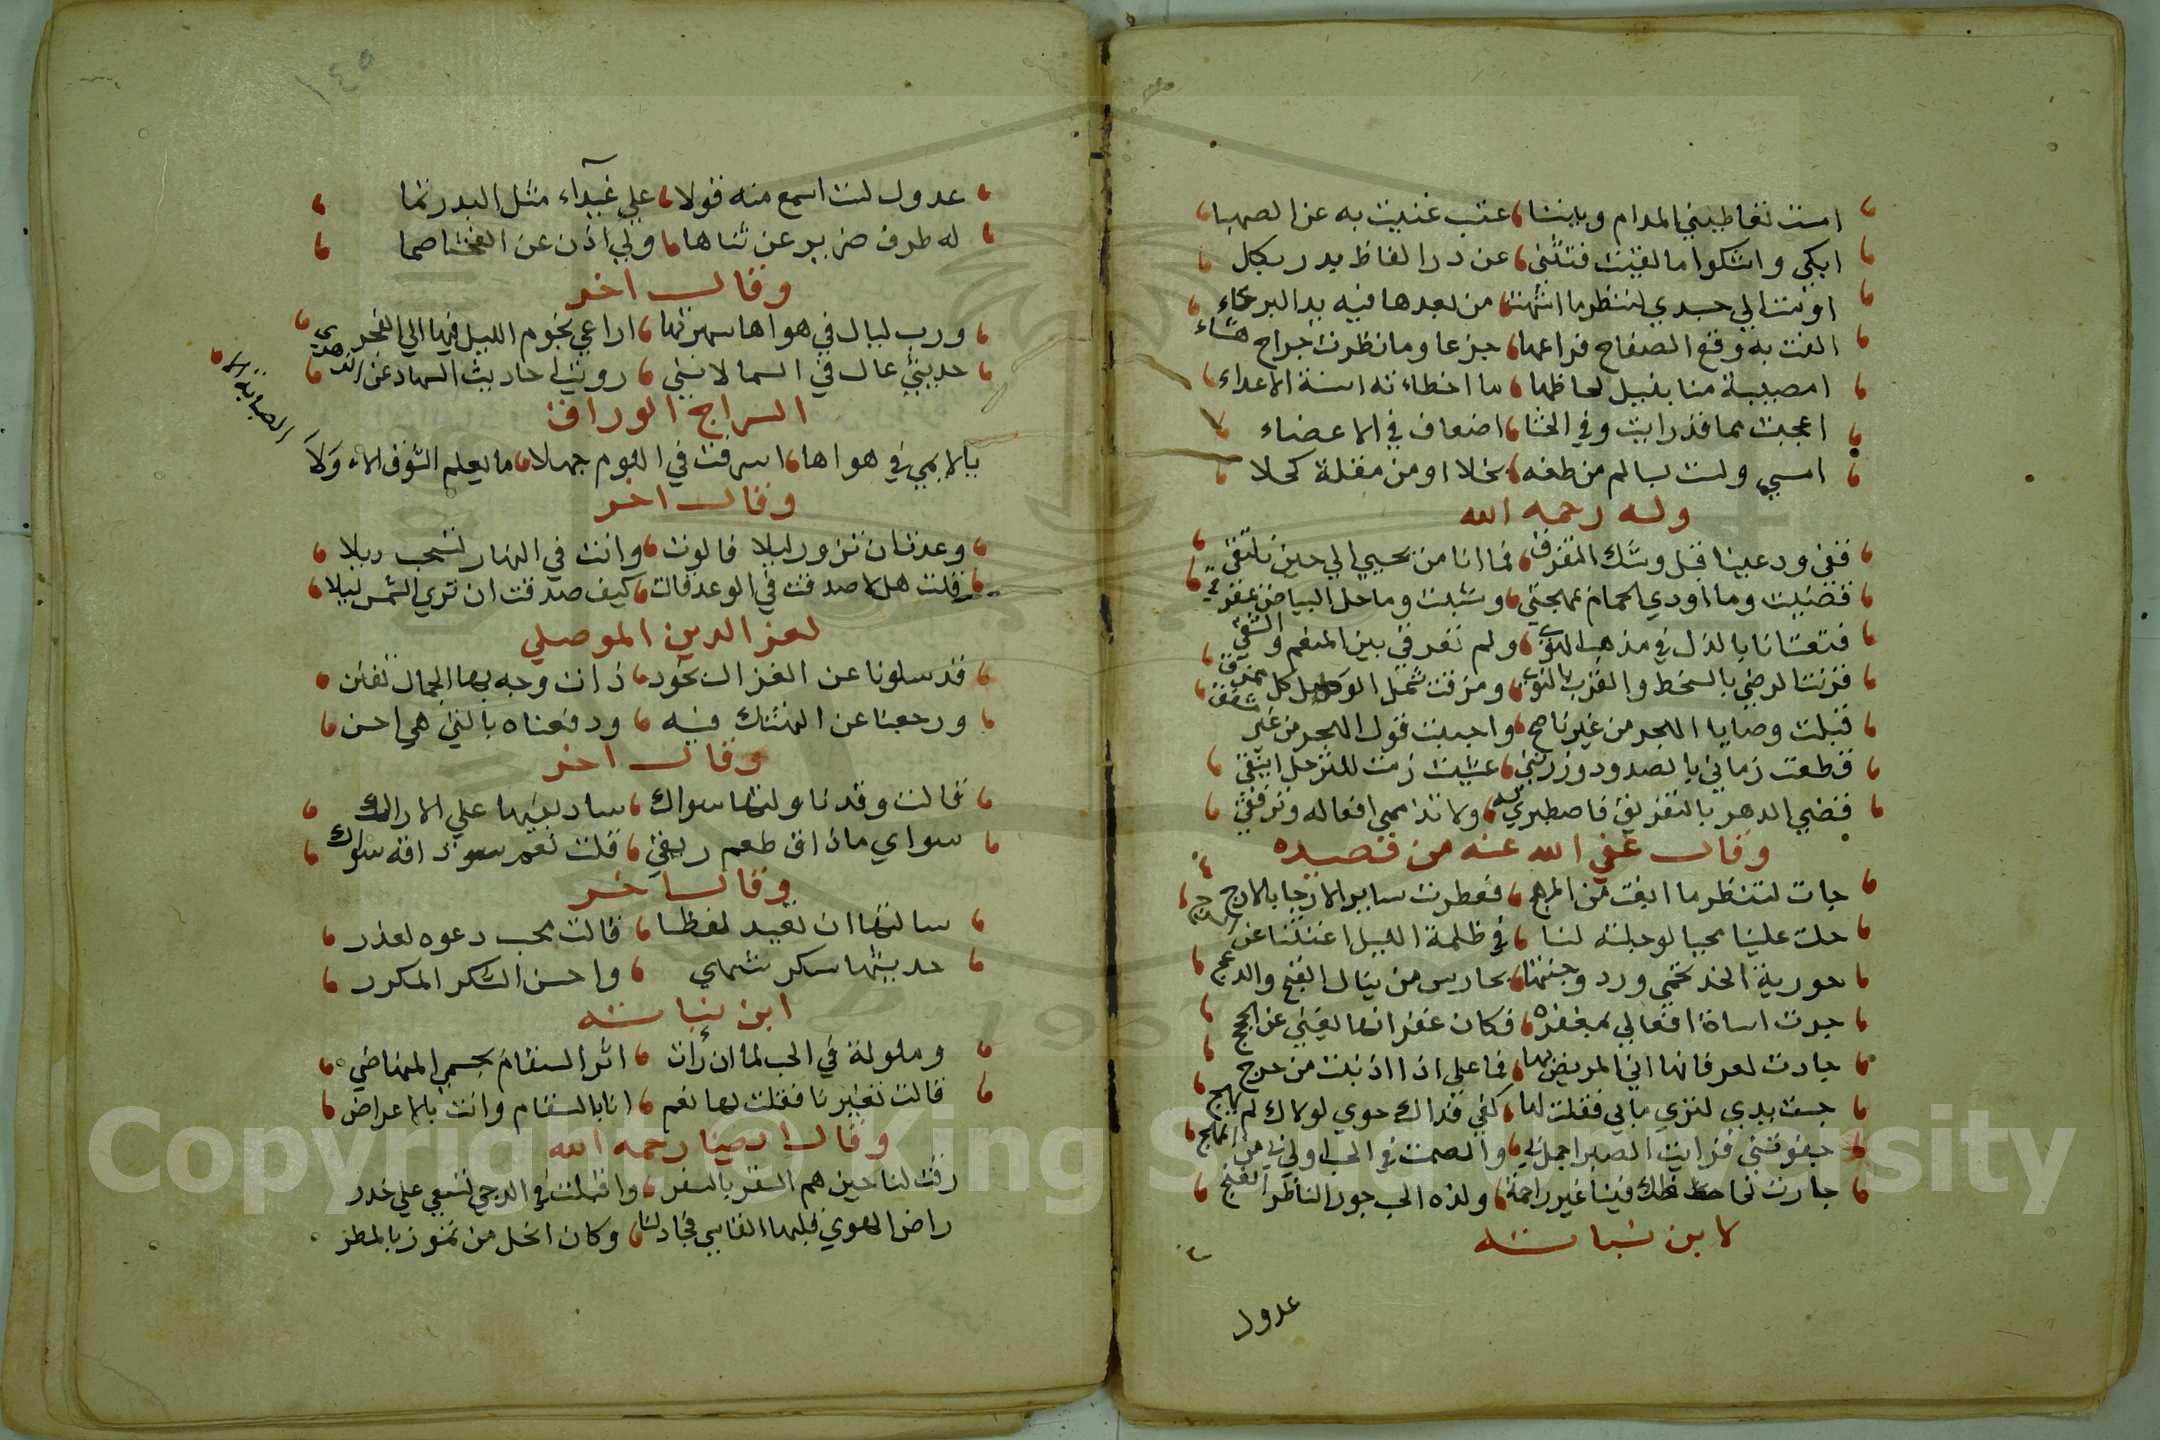 امست تعاطيني المدام وبيننا عتب غنيت به عن الصهبا
ابكي واشكوا ما لقيت فتنثني عن در الفاظ بدر بكا
اونت الي جسدي لتنظر ما انتهت من بعدها فيه يد البرحاء
الفت به وقع الصفاح فراعها جزعا وما نظرت جراح حشاء
امصيبة منا بنبل لحاظها ما اخطاءته اسنة الاعداء
اعجبت مما قد رايت وفي الحشا اضعاف في الاعضاء
امسي ولست بسالم من طعنه نجلا او من مقلة كحلا
وله رحمه الله
قفي ودعينا قبل وشك التفرق فما انا من يحيي الي حين نلتقي
قضيت وما اودي الحمام بمهجتي وشبت وما حل البياض بمفرقي
قنعت انا بالذل في مذهب الهوي ولم تفرقي بين المنعم والشقي
قرنت الرضي بالسخط والقرب بالنوي ومزقت شمل الوصل كل ممزق
قبلت وصايا الهجر من غير ناصح واجبت قول الهجر من غير مشفق
قطعت زماني بالصدود وزرتني عشيت زمت للترحل اينقي
قضي الدهر بالتفريق فاصطبري له ولا تذممي افعاله وترفقي
وقال عفي الله عنه من قصيده
جات لتنظر ما ابقت من المهج فعطرت ساير الارجا بالارج
جلت علينا محيا لو جلته لنا في ظلمة الليل اغنتنا عن السرج
حورية الخد تحمي ورد وجنتها بحارس من نبال الغنج والدعج
جزت اساة افعالي بمغفرة فكان غفرانها يغني عن الحجج
جادت لعرفانها اني المريض بها فما علي اذا اذنبت من حرج
جست يدي لتري ما بي فقلت لها كفي فذاك جوي لولاك لم يهج
جفوتني فرايت الصبر اجمل لي والصمت في الحب اولي بي من الهج
جارت لحاظك فينا غير راحمة ولذه الحب جور الناظر الغنج
لابن نباته
عدول
١٤٥
عدول لست اسمع منه قولا علي غيداء مثل البدر تما
له طرف ضرير عن ثناها ولي اذن عن الفحشا صما
وقال اخر
ورب ليال في هواها سهرتها اراعي نجوم الليل فيها الي الفجر
حديثي عال في السما لانني رويت احاديث السهاد عن الزهري
السراج الوراق
يالايمي في هواها اسرفت في اللوم جهلا ما يعلم الشوق الا ولا
الصبابة الا
وقال اخر
وعدت ان تزور ليلا فالوت وانت في النهار تسحب ديلا
قلت هلا صدقت في الوعد قالت كيف صدقت ان تري الشمس ليلا
لعز الدين الموصلي
قد سلونا عن الغزال بخود ذات وجه بها الجمال تفنن
ورجعنا عن التهتك فيه ودفعناه بالتي هي احسن
وقال اخر
قالت وقد ناولتها سواك ساد بفيها علي الاراك
سواي ماذاق طعم ريقي قلت نعم ذاقه سواك
وقال اخر
سالتها ان تعيد لفظا قالت محب دعوه يعذر
حديثها سكر شهي واحسن السكر المكرر
ابن نباته
وملولة في الحب لما ان رات اثر السقام بجسمي المنهاضي
قالت تغيرنا فقلت لها نعم انا بالسقام وانت بالاعراض
وقال ايضا رحمه الله
رقت لنا حين هم السفر بالسفر واقبلت في الدجي تسعي علي خدر
راض الهوي قلبها القاسي فجاد لنا وكان ابخل من تموز بالمطر
Copyright © King Saud University
1957